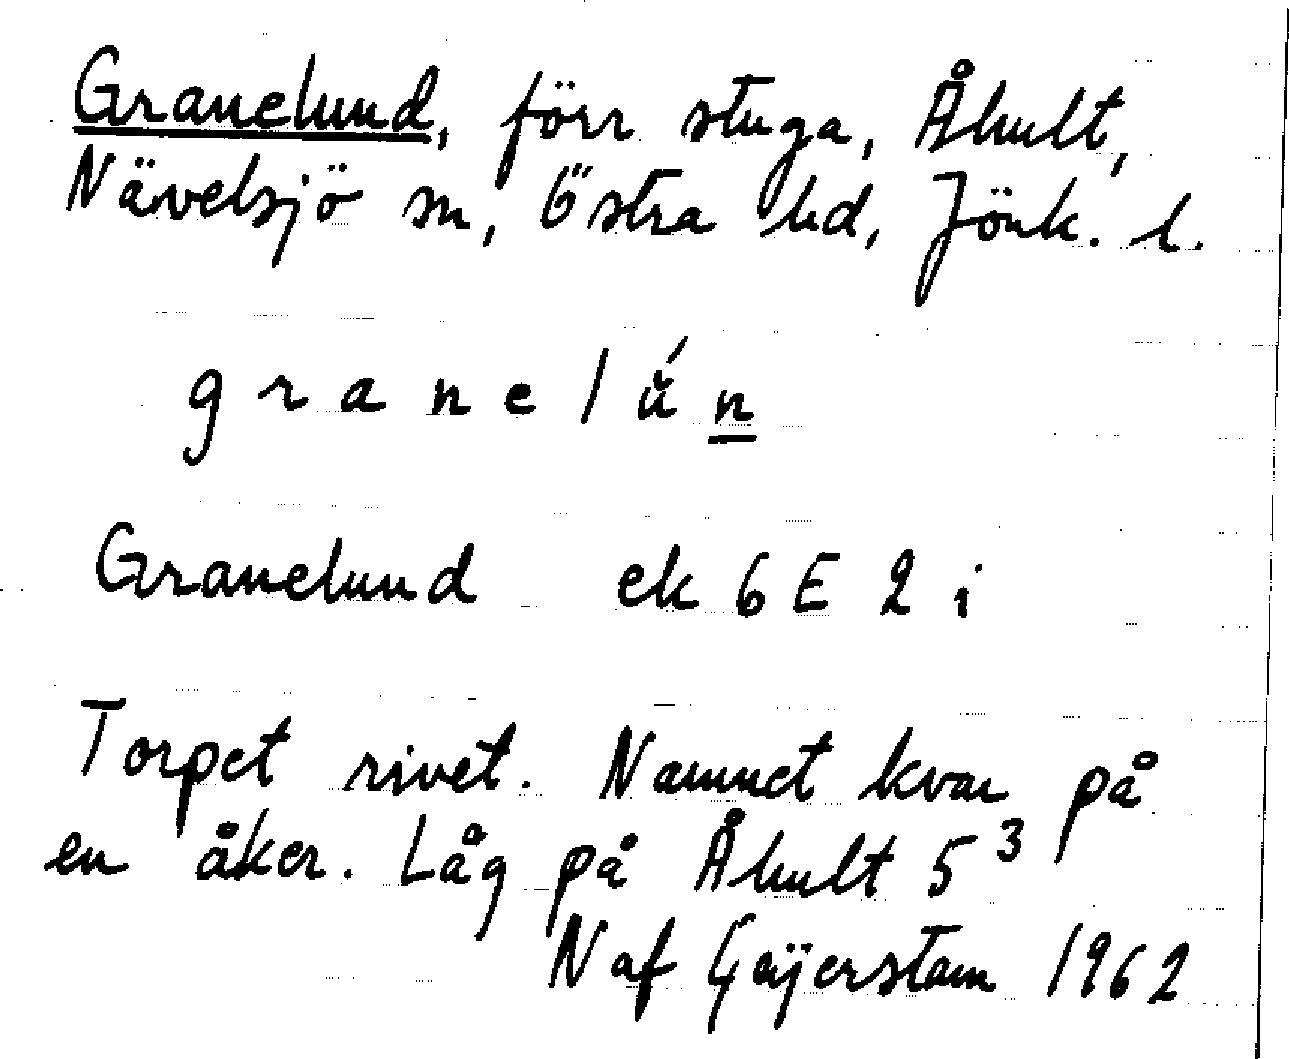 Granelund, förr stuga, Åhult,
Nävelsjö sn, Östra hd, Jönk. l.
g r a n e l ú n
Granelund ek 6 E 2 i
Torpet rivet. Namnet kvar på
en åker. Låg på Åhult 5³
N af Geijerstam 1962